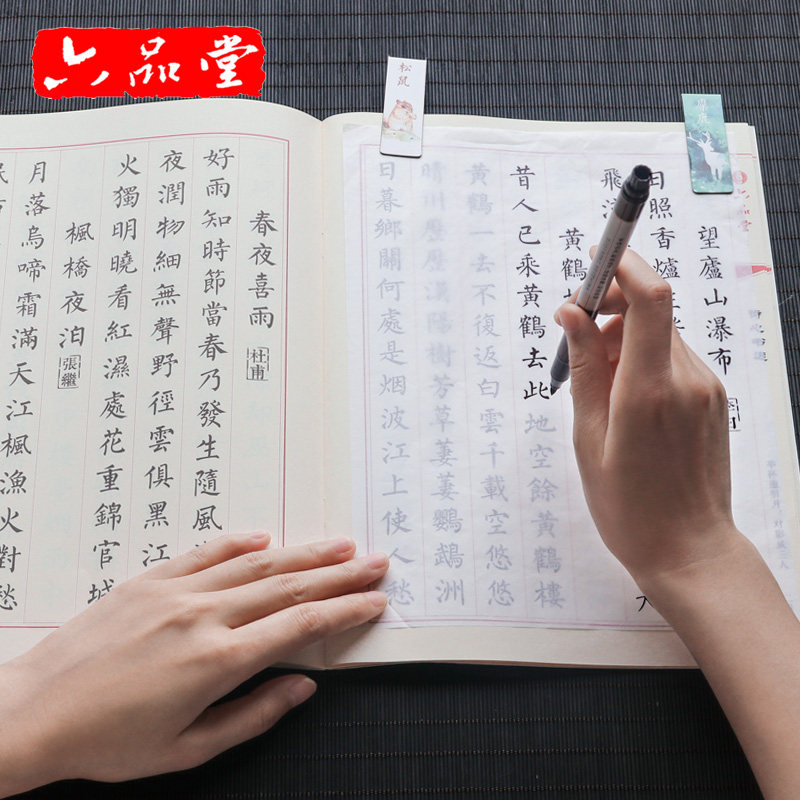 六品堂
松鼠
六品堂
望廬山瀑布
日照香爐
飛流
黃鶴
昔人已乘黃鶴去此地空餘黃鶴樓
黃鶴一去不復返白雲千載空悠悠
晴川歷歷漢陽樹芳草萋萋鸚鵡洲
日暮鄉關何處是烟波江上使人愁
春夜喜雨
杜甫
好雨知時節當春乃發生隨風
夜潤物細無聲野徑雲俱黑江
火獨明曉看紅濕處花重錦官城
楓橋夜泊
張繼
月落烏啼霜滿天江楓漁火對愁